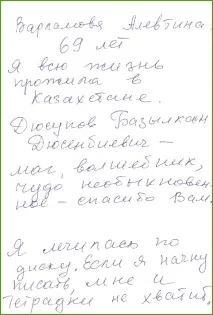 Варламова Алевтина
69 лет
Я всю жизнь
прожила в
Казахстане.
Дюсупов Базылкан
Дюсенбиевич –
маг, волшебник,
чудо необыкновен-
ное – спасибо Вам.
Я лечилась по
диску. Если я начну
писать, мне и
тетрадки не хватит,